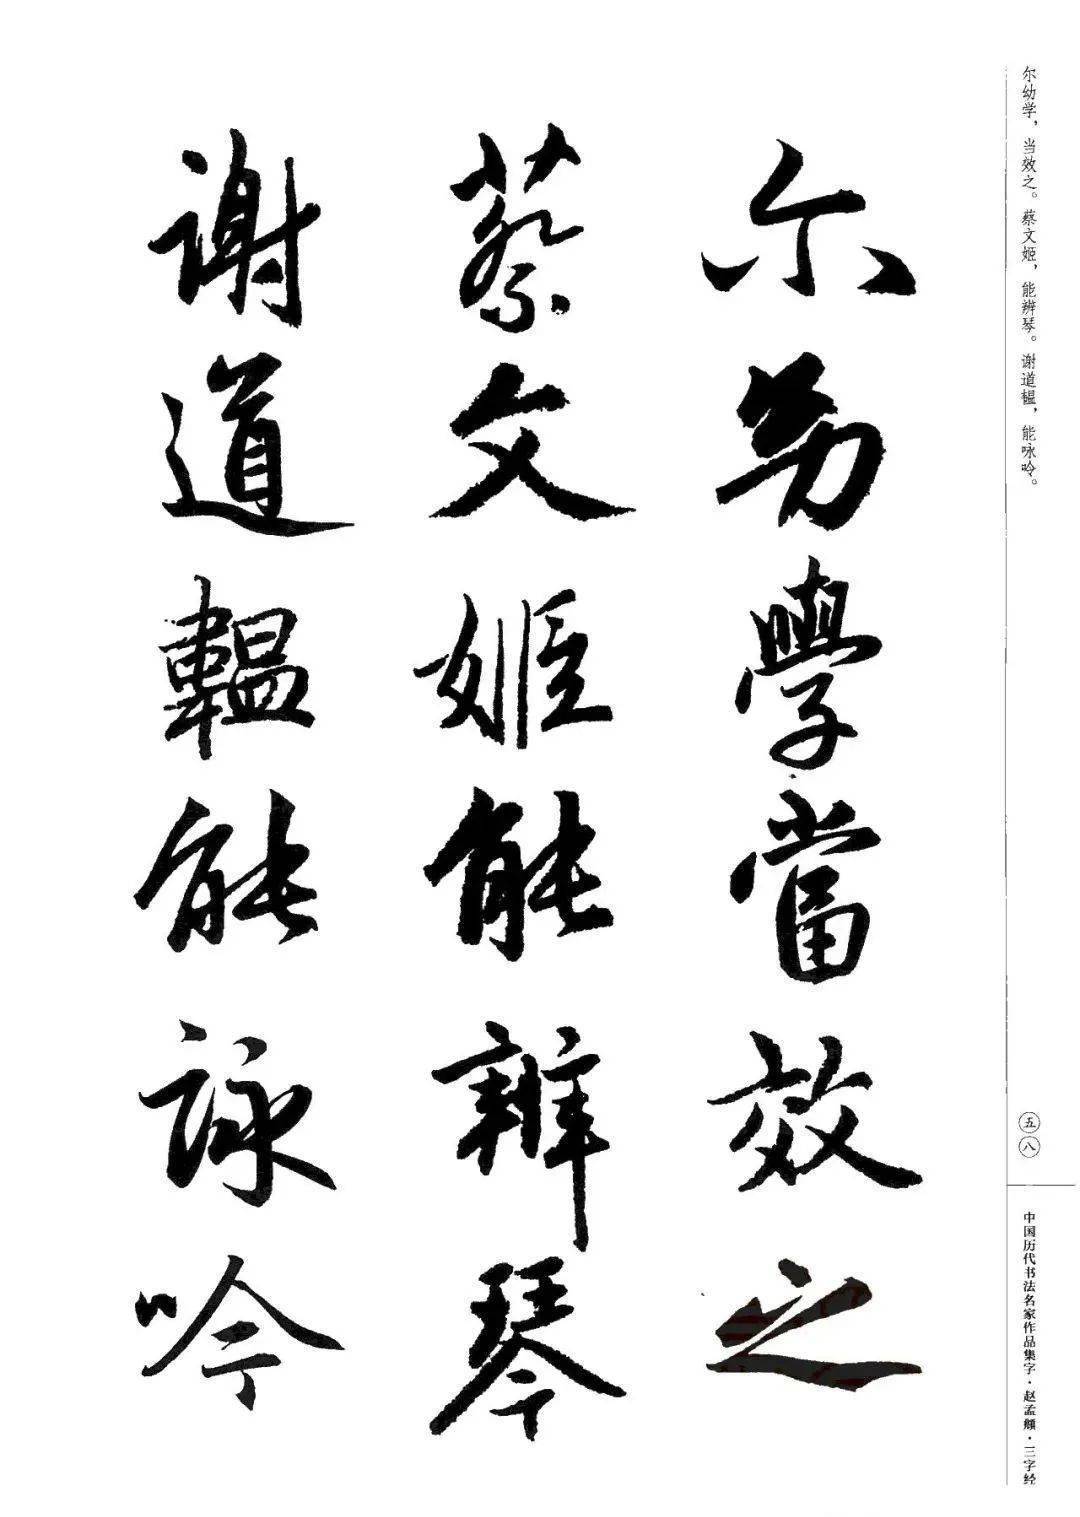 尔幼学，当效之。蔡文姬，能辨琴。谢道韫，能咏吟。
尒幼學當效之
蔡文姬能辨琴
謝道韞能詠吟
五八
中国历代书法名家作品集字·赵孟頫·三字经